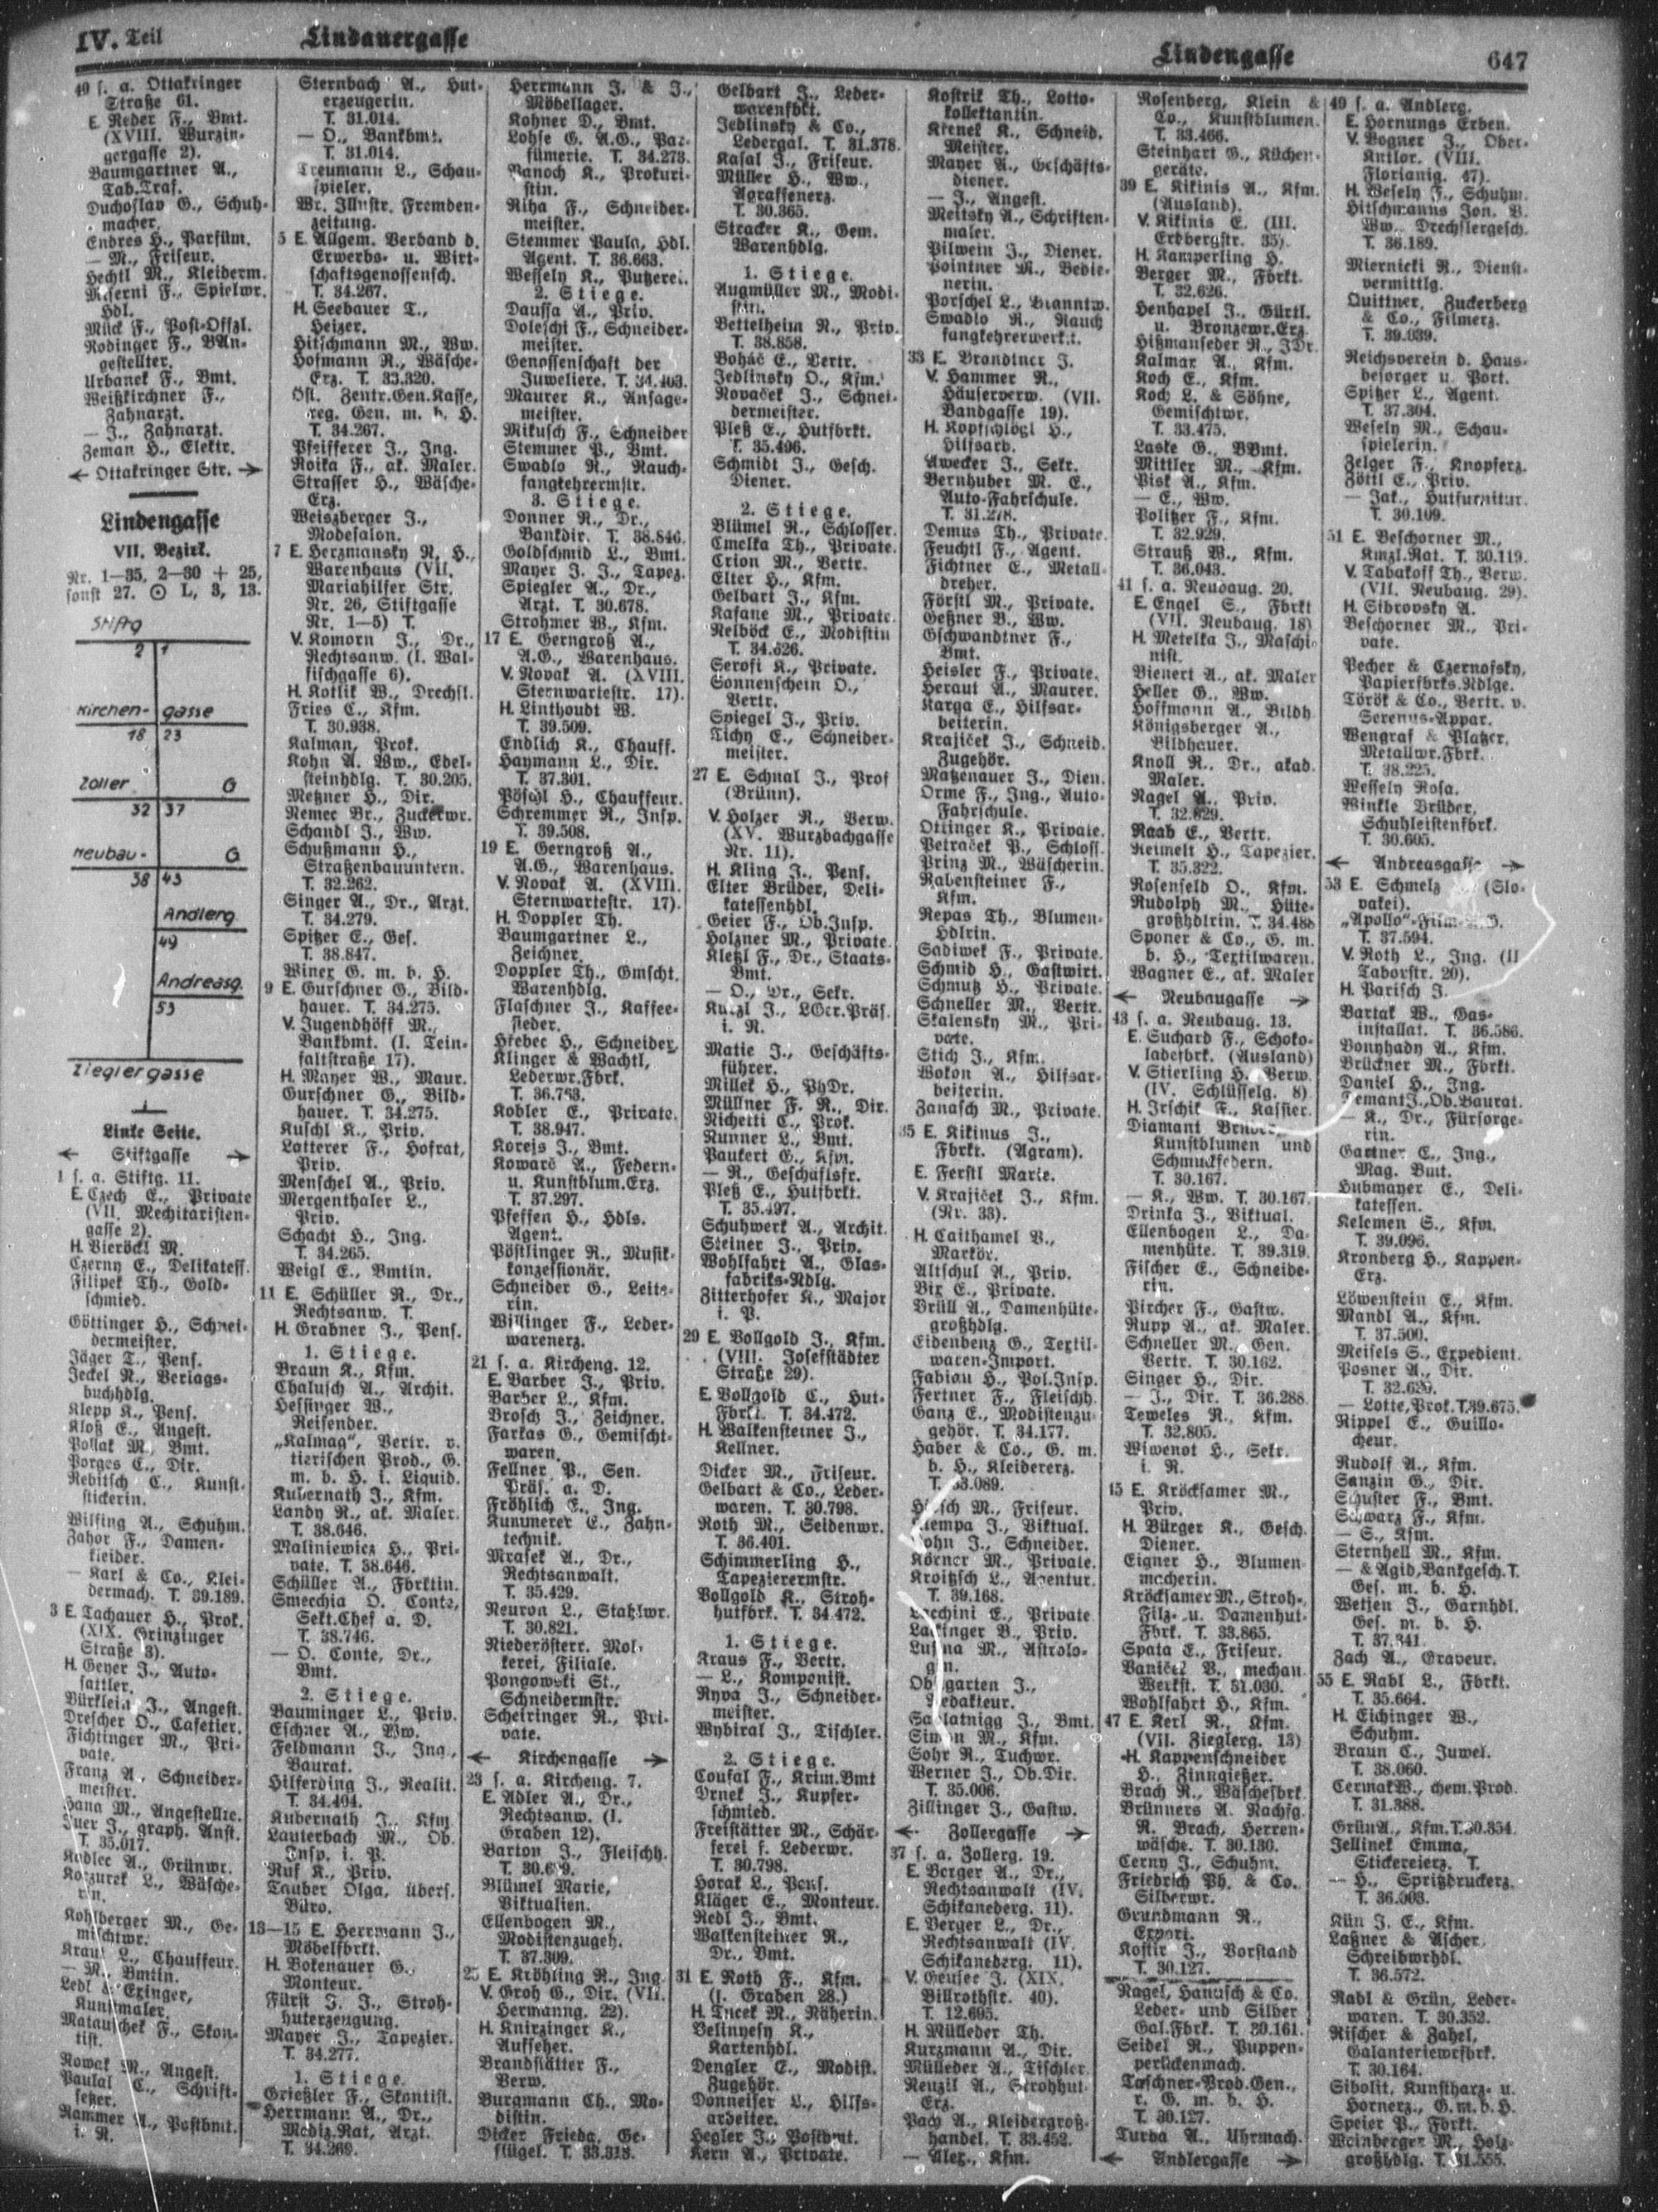 IV. Teil
Lindauergasse
Lindengasse
647
40 s. a. Ottakringer
Straße 61.
E. Reder F., Bmt.
(XVIII. Wurzin-
gergasse 2).
Baumgartner A.,
Tab.Traf.
Duchoslav G., Schuh-
macher.
Endres H., Parfüm.
— M., Friseur.
Hechtl M., Kleiderm.
Hdl.
Mück F., Post-Offzl.
Rodinger F., BAn-
gestellter.
Urbanek F., Bmt.
Weißkirchner F.,
Zahnarzt.
— J., Zahnarzt.
Zeman H., Elektr.
← Ottakringer Str. →
Lindengasse
VII. Bezirk.
Nr. 1—35, 2—30 + 25,
sonst 27. ⊙ L, 3, 13.
Stiftg
2 1
Kirchen- gasse
18 23
Zoller G
32 37
Neubau- G
38 43
Andlerg.
49
Andreasg.
53
Zieglergasse
Linke Seite.
← Stiftgasse →
1 s. a. Stiftg. 11.
E. Czech E., Private
(VII. Mechitaristen-
gasse 2).
H. Bieröckl M.
Czerny E., Delikatess.
Filipek Th., Gold-
schmied.
Göttinger H., Schnei-
dermeister.
Jäger T., Pens.
Jeckel R., Verlags-
buchhdlg.
Klepp K., Pens.
Kloß E., Angest.
Pollak M., Bmt.
Porges C., Dir.
Rebitsch C., Kunst-
stickerin.
Wilfing A., Schuhm.
Zahor F., Damen-
kleider.
— Karl & Co., Klei-
dermach. T. 39.189.
3 E. Tachauer H., Prok.
(XIX. Grinzinger
Straße 3).
H. Geyer J., Auto-
sattler.
Bürklein J., Angest.
Drescher O., Cafetier.
Fichtinger M., Pri-
vate.
Franz A., Schneider-
meister.
Hana M., Angestellte.
T. 35.017.
Kadlec A., Grünwr.
Kohlberger M., Ge-
mischtwr.
Kraul L., Chauffeur.
— M., Bmtin.
Ledl & Exinger,
Kunstmaler.
Matauschek F., Skon-
tist.
Nowak M., Angest.
Paulal C., Schrift-
setzer.
Rammer A., Postbmt.
i. R.
Sternbach A., Hut-
erzeugerin.
T. 31.014.
— O., Bankbmt.
T. 31.014.
Treumann L., Schau-
spieler.
Wr. Illustr. Fremden-
zeitung.
5 E. Allgem. Verband d.
Erwerbs- u. Wirt-
schaftsgenossensch.
T. 34.267.
H. Seebauer T.,
Heizer.
Hitschmann M., Ww.
Hofmann R., Wäsche-
Erz. T. 35.320.
Öst. Zentr.Gen.Kasse,
reg. Gen. m. b. H.
T. 34.267.
Pfeifferer J., Ing.
Roika F., ak. Maler.
Strasser H., Wäsche-
Erz.
Weiszberger J.,
Modesalon.
7 E. Herzmansky A. H.,
Warenhaus (VII.
Mariahilfer Str.
Nr. 26, Stiftgasse
Nr. 1—5) T.
V. Komorn J., Dr.,
Rechtsanw. (I. Wal-
fischgasse 6).
H. Kotlik W., Drechsl.
Fries C., Kfm.
T. 30.938.
Kalman, Prok.
Kohn A. Ww., Edel-
steinhdlg. T. 30.205.
Meßner H., Dir.
Nemec Br., Zuckerwr.
Schandl J., Ww.
Schußmann H.,
Straßenbauuntern.
T. 32.262.
Singer A., Dr., Arzt.
T. 34.279.
Spitzer E., Ges.
T. 38.847.
Winex G. m. b. H.
9 E. Gurschner G., Bild-
hauer. T. 34.275.
V. Jugendhöff M.,
Bankbmt. (I. Tein-
faltstraße 17).
H. Mayer W., Maur.
Gurschner G., Bild-
hauer. T. 34.275.
Kuschl K., Priv.
Latterer F., Hofrat,
Priv.
Menschel A., Priv.
Mergenthaler L.,
Priv.
Schacht H., Ing.
T. 34.265.
Weigl E., Bmtin.
11 E. Schüller R., Dr.,
Rechtsanw. T.
H. Grabner J., Pens.
1. Stiege.
Braun K., Kfm.
Chalusch A., Archit.
Hessinger W.,
Reisender.
„Kalmag“, Vertr. v.
tierischen Prod., G.
m. b. H. i. Liquid.
Kubernath J., Kfm.
Landy R., ak. Maler.
T. 38.646.
Maliniewicz H., Pri-
vate. T. 38.646.
Schüller A., Fbrktin.
Smecchia O. Conte,
Sekt.Chef a. D.
T. 38.746.
— O. Conte, Dr.,
Bmt.
2. Stiege.
Bauminger L., Priv.
Eschner A., Ww.
Feldmann J., Ing.,
Baurat.
Hilferding J., Realit.
T. 34.404.
Kubernath J., Kfm
Lauterbach M., Ob.
Insp. i. P.
Ruf K., Priv.
Tauber Olga, übers.
Büro.
13—15 E. Herrmann J.,
Möbelfbrkt.
H. Bokenauer G.,
Monteur.
Fürst J. J., Stroh-
huterzeugung.
Mayer J., Tapezier.
T. 34.277.
1. Stiege.
Grießler F., Skontist.
Herrmann A., Dr.,
Mediz.Rat, Arzt.
T. 34.269.
Herrmann J. & J.,
Möbellager.
Kohner D., Bmt.
Lohse G. A.G., Par-
fümerie. T. 34.273.
Panoch K., Prokuri-
stin.
Riha F., Schneider-
meister.
Stemmer Paula, Hdl.
Agent. T. 36.663.
Wessely K., Putzerei.
2. Stiege.
Daussa A., Priv.
Doleschi F., Schneider-
meister.
Genossenschaft der
Juweliere. T. 34.403.
Maurer K., Ansage-
meister.
Mikusch F., Schneider
Stemmer P., Bmt.
Swadlo R., Rauch-
fangkehrermstr.
3. Stiege.
Donner R., Dr.,
Bankdir. T. 38.846.
Goldschmid L., Bmt.
Mayer J. J., Tapez.
Spiegler A., Dr.,
Arzt. T. 30.678.
Strohmer W., Kfm.
17 E. Gerngroß A.,
A.G., Warenhaus.
V. Novak A. (XVIII.
Sternwartestr. 17).
H. Linthoudt W.
T. 39.509.
Endlich K., Chauff.
Haymann L., Dir.
T. 37.301.
Pöschl H., Chauffeur.
Schremmer R., Insp.
T. 39.508.
19 E. Gerngroß A.,
A.G., Warenhaus.
V. Novak A. (XVIII.
Sternwartestr. 17).
H. Doppler Th.
Baumgartner L.,
Zeichner.
Doppler Th., Gmscht.
Warenhdlg.
Flaschner J., Kaffee-
sieder.
Hřebec H., Schneider.
Klinger & Wachtl,
Lederwr.Fbrk.
Kobler E., Private.
T. 38.947.
Korejs J., Bmt.
Kowarč A., Federn-
u. Kunstblum.Erz.
T. 37.297.
Pfeffen H., Hdls.
Agent.
Pöstlinger R., Musik-
konzessionär.
Schneider G., Leite-
rin.
Willinger F., Leder-
warenerz.
21 s. a. Kircheng. 12.
E. Barber J., Priv.
Barber L., Kfm.
Brosch J., Zeichner.
Farkas G., Gemischt-
waren.
Fellner P., Sen.
Präs. a. D.
Fröhlich E., Ing.
Kummerer E., Zahn-
technik.
Mrasek A., Dr.,
Rechtsanwalt.
T. 35.429.
Neuron L., Stahlwr.
T. 30.821.
Niederösterr. Mol-
kerei, Filiale.
Pongowski St.,
Schneidermstr.
Scheiringer R., Pri-
vate.
← Kirchengasse →
23 s. a. Kircheng. 7.
E. Adler A., Dr.,
Rechtsanw. (I.
Graben 12).
Barton J., Fleischh.
Blümel Marie,
Viktualien.
Ellenbogen M.,
Modistenzugeh.
T. 37.309.
25 E. Kröhling R., Ing.
V. Groh G., Dir. (VII.
Hermanng. 22).
H. Knirzinger K.,
Aufseher.
Brandstätter F.,
Verw.
Burgmann Ch., Mo-
distin.
Dicker Frieda, Ge-
flügel. T. 33.318.
Gelbart J., Leder-
warenfbkt.
Jedlinsky & Co.,
Ledergal. T. 31.378.
Kasal J., Friseur.
Müller H., Ww.,
Agraffenerz.
T. 30.365.
Stracker K., Gem.
Warenhdlg.
1. Stiege.
Augmüller M., Modi-
stin.
Bettelheim R., Priv.
T. 38.858.
Boháč E., Vertr.
Jedlinsky O., Kfm.
Novaček J., Schnei-
dermeister.
Pleß E., Hutfbrkt.
T. 35.496.
Schmidt J., Gesch.
Diener.
2. Stiege.
Blümel R., Schlosser.
Cmelka Th., Private.
Crion M., Vertr.
Elter H., Kfm.
Gelbart J., Kfm.
Kafane M., Private.
Nelböck E., Modistin
T. 34.626.
Serofi K., Private.
Sonnenschein O.,
Vertr.
Spiegel J., Priv.
Tichy E., Schneider-
meister.
27 E. Schnal J., Prof
(Brünn).
V. Holzer R., Verw.
(XV. Wurzbachgasse
Nr. 11).
H. Kling J., Pens.
Elter Brüder, Deli-
katessenhdl.
Geier F., Ob.Insp.
Holzner M., Private.
Kletzl F., Dr., Staats-
Bmt.
— O., Dr., Sekr.
i. R.
Matie J., Geschäfts-
führer.
Millek H., PhDr.
Müllner F. R., Dir.
Richetti C., Prok.
Runner L., Bmt.
Paukert G., Kfm.
— R., Geschäftsfr.
Pleß E., Hutfbrkt.
T. 35.497.
Schuhwerk A., Archit.
Steiner J., Priv.
Wohlfahrt A., Glas-
fabriks-Ndlg.
Zitterhofer K., Major
i. P.
29 E. Vollgold J., Kfm.
(VIII. Josefstädter
Straße 29).
E. Vollgold C., Hut-
Fbrkt. T. 34.472.
H. Walkensteiner J.,
Kellner.
Dicker M., Friseur.
Gelbart & Co., Leder-
waren. T. 30.798.
Roth M., Seidenwr.
T. 36.401.
Schimmerling H.,
Tapezierermstr.
Vollgold K., Stroh-
hutfbrk. T. 34.472.
1. Stiege.
Kraus F., Vertr.
— L., Komponist.
Ryva J., Schneider-
meister.
Wybiral J., Tischler.
2. Stiege.
Coufal F., Krim.Bmt
Drnek J., Kupfer-
schmied.
Freistätter M., Schär-
ferei f. Lederwr.
T. 30.798.
Horak L., Pens.
Kläger E., Monteur.
Redl J., Bmt.
Walkensteiner R.,
Dr., Bmt.
31 E. Roth F., Kfm.
(I. Graben 28.)
H. Tucek M., Näherin.
Belinyesy K.,
Kartenhdl.
Dengler E., Modist.
Zugehör.
Donneiser L., Hilfs-
arbeiter.
Hegler J., Postbmt.
Kern A., Private.
Kostrik Th., Lotto-
kollektantin.
Křenek K., Schneid.
Meister.
Mayer A., Geschäfts-
diener.
— J., Angest.
Meitsky A., Schriften-
maler.
Pilwein J., Diener.
Pointner M., Bedie-
nerin.
Porschel L., Branntw.
Swadlo R., Rauch
fangkehrerwerkt.
33 E. Brandtner J.
V. Hammer R.,
Häuserverw. (VII.
Bandgasse 19).
H. Kopfschlögl H.,
Hilfsarb.
Awecker J., Sekr.
Bernhuber M. E.,
Auto-Fahrschule.
T. 31.278.
Demus Th., Private.
Feuchtl F., Agent.
Fichtner E., Metall-
dreher.
Förstl M., Private.
Geßner B., Ww.
Gschwandtner F.,
Bmt.
Heisler F., Private.
Heraut A., Maurer.
Karga E., Hilfsar-
beiterin.
Krajiček J., Schneid.
Zugehör.
Matzenauer J., Dien.
Orme F., Ing., Auto-
Fahrschule.
Ottinger K., Private.
Petraček P., Schloss.
Prinz M., Wäscherin.
Rabensteiner F.,
Kfm.
Repas Th., Blumen-
Hdlrin.
Sadiwek F., Private.
Schmid H., Gastwirt.
Schmutz H., Private.
Schneller M., Vertr.
Skalensky M., Pri-
vate.
Stich J., Kfm.
Wokon A., Hilfsar-
beiterin.
Zanasch M., Private.
35 E. Kikinus J.,
Fbrkt. (Agram).
E. Ferstl Marie.
V. Krajiček J., Kfm.
(Nr. 33).
H. Caithamel B.,
Markör.
Altschul A., Priv.
Bix E., Private.
Brüll A., Damenhüte-
großhdlg.
Eidenbenz G., Textil-
waren-Import.
Fabian H., Pol.Insp.
Fertner F., Fleischh.
Ganz E., Modistenzu-
gehör. T. 34.177.
Haber & Co., G. m.
b. H., Kleidererz.
T. 33.089.
Hirsch M., Friseur.
Klempa J., Viktual.
Kohn J., Schneider.
Körner M., Private.
Kroitzsch L., Agentur.
T. 39.168.
Lucchini E., Private
Lusina M., Astrolo-
gin.
Obstgarten J.,
Redakteur.
Sablatnigg J., Bmt.
Simon M., Kfm.
Sohr R., Tuchwr.
Werner J., Ob.Dir.
T. 35.006.
Zillinger J., Gastw.
← Zollergasse →
37 s. a. Zollerg. 19.
E. Berger A., Dr.,
Rechtsanwalt (IV.
Schikanederg. 11).
E. Berger L., Dr.,
Rechtsanwalt (IV.
Schikanederg. 11).
V. Geusee J. (XIX.
Billrothstr. 40).
T. 12.695.
H. Mülleder Th.
Kurzmann A., Dir.
Mülleder A., Tischler.
Renzil A., Strohhut-
Erz.
Pach A., Kleidergroß-
handel. T. 33.452.
— Alex., Kfm.
Rosenberg, Klein &
Co., Kunstblumen.
T. 33.466.
Steinhart G., Küchen-
geräte.
39 E. Kikinis A., Kfm.
(Ausland).
V. Kikinis E. (III.
Erdbergstr. 35).
H. Kamperling H.
Berger M., Fbrkt.
T. 32.626.
Henhapel J., Gürtl.
u. Bronzewr.Erz.
Hißmanseder R., JDr.
Kalmar A., Kfm.
Koch E., Kfm.
Koch L. & Söhne,
Gemischtwr.
T. 33.475.
Laske G., BBmt.
Mittler M., Kfm.
Pisk A., Kfm.
— E., Ww.
Politzer F., Kfm.
T. 32.929.
Strauß W., Kfm.
T. 36.043.
41 s. a. Neubaug. 20.
E. Engel S., Fbrkt
(VII. Neubaug. 18)
H. Metelka J., Maschi-
nist.
Bienert A., ak. Maler
Heller G., Ww.
Hoffmann A., Bildh
Königsberger A.,
Bildhauer.
Knoll R., Dr., akad.
Maler.
Nagel A., Priv.
T. 32.829.
Raab E., Vertr.
Reimelt H., Tapezier.
T. 35.322.
Rosenfeld O., Kfm.
Rudolph M., Hüte-
großhdlrin. T. 34.488
Sponer & Co., G. m.
b. H., Textilwaren.
Wagner E., ak. Maler
← Neubaugasse →
43 s. a. Neubaug. 13.
E. Suchard F., Schoko-
ladefbrk. (Ausland)
V. Stierling H., Verw.
(IV. Schlüsselg. 8)
H. Irschik F., Kassier.
Diamant Brüder,
Kunstblumen und
Schmuckfedern.
T. 30.167.
— K., Ww. T. 30.167.
Drinka J., Viktual.
Ellenbogen L., Da-
menhüte. T. 39.319.
Fischer E., Schneide-
rin.
Pircher F., Gastw.
Rupp A., ak. Maler.
Schneller M., Gen.
Vertr. T. 30.162.
Singer H., Dir.
— J., Dir. T. 36.288.
Teweles R., Kfm.
T. 32.805.
Wiwenot H., Sekr.
i. R.
45 E. Kröcksamer M.,
Priv.
H. Bürger K., Gesch.
Diener.
Eigner H., Blumen-
macherin.
Kröcksamer M., Stroh-,
Filz- u. Damenhut-
Fbrk. T. 33.865.
Spata E., Friseur.
Vaniček V., mechan.
Werkst. T. 31.030.
Wohlfahrt H., Kfm.
47 E. Kerl R., Kfm.
(VII. Zieglerg. 13)
H. Kappenschneider
H., Zinngießer.
Brach R., Wäschefbrk
Brünners A. Nachfg.
R. Brach, Herren-
wäsche. T. 30.130.
Cerny J., Schuhm.
Friedrich Ph. & Co.,
Silberwr.
Grundmann R.,
Export.
Kostir J., Vorstand
T. 30.127.
Nagel, Hanusch & Co.
Leder- und Silber
Gal.Fbrk. T. 30.161.
Seidel R., Puppen-
perückenmach.
Taschner-Prod.Gen.,
r. G. m. b. H.
T. 30.127.
Turba A., Uhrmach.
← Andlergasse →
49 s. a. Andlerg.
E. Hornungs Erben.
V. Bogner J., Ober-
Kntlor. (VIII.
Florianig. 47).
H. Wesely F., Schuhm.
Hitschmanns Jon. B.
Ww., Drechslergesch.
T. 36.189.
Miernicki R., Dienst-
vermittlg.
Quittner, Zuckerberg
& Co., Filmerz.
T. 39.039.
Reichsverein d. Haus-
besorger u. Port.
Spitzer L., Agent.
T. 37.304.
Wesely M., Schau-
spielerin.
Zelger F., Knopferz.
Zöttl E., Priv.
— Jak., Hutfurnitur.
T. 30.109.
51 E. Beschorner M.,
Kmzl.Rat. T. 30.119.
V. Tabakoff Th., Verw.
(VII. Neubaug. 29).
H. Sibrovsky A.
Beschorner M., Pri-
vate.
Pecher & Czernofsky,
Papierfbrks.Ndlge.
Török & Co., Vertr. v.
Serenus-Appar.
Wengraf & Platzer,
Metallwr.Fbrk.
T. 38.225.
Wessely Rosa.
Winkle Brüder,
Schuhleistenfbrk.
T. 30.605.
← Andreasgasse →
53 E. Schmelz (Slo-
vakei).
„Apollo“-Film-A.G.
T. 37.594.
V. Roth L., Ing. (II
Taborstr. 20).
H. Parisch J.
Bartak W., Gas-
installat. T. 36.586.
Bonyhady A., Kfm.
Brückner M., Fbrkt.
Daniel H., Ing.
Demant J., Ob.Baurat.
— K., Dr., Fürsorge-
rin.
Gartner E., Ing.,
Mag. Bmt.
Hubmayer E., Deli-
katessen.
Kelemen S., Kfm.
T. 39.096.
Kronberg H., Kappen-
Erz.
Löwenstein E., Kfm.
Mandl A., Kfm.
T. 37.500.
Meisels S., Expedient.
Posner A., Dir.
— Lotte, Prok. T.39.675.
Rippel E., Guillo-
cheur.
Rudolf A., Kfm.
Sanzin G., Dir.
Schuster F., Bmt.
Schwarz F., Kfm.
— S., Kfm.
Sternhell M., Kfm.
— & Agid, Bankgesch. T.
Ges. m. b. H.
Wetjen J., Garnhdl.
Ges. m. b. H.
T. 37.341.
Zach A., Graveur.
55 E. Rabl L., Fbrkt.
T. 35.664.
H. Eichinger W.,
Schuhm.
Braun C., Juwel.
T. 38.060.
Cermak W., chem.Prod.
T. 31.388.
Grün A., Kfm. T.30.354.
Jellinek Emma,
Stickereierz. T.
— H., Spritzdruckerz.
T. 36.503.
Kün J. E., Kfm.
Laßner & Ascher,
Schreibwrhdl.
T. 36.572.
Rabl & Grün, Leder-
waren. T. 30.352.
Rischer & Zahel,
Galanteriewrfbrk.
T. 30.164.
Sibolit, Kunstharz- u.
Hornerz., G.m.b.H.
Speier P., Fbrkt.
Weinberger M., Holz-
großhdlg. T. 31.555.